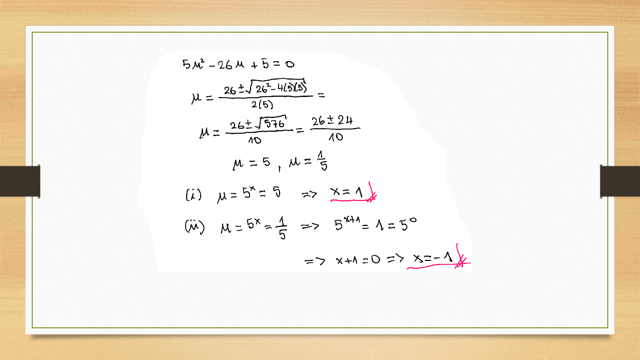 5μ² - 26μ + 5 = 0
μ = (26 ± √(26² - 4(5)(5))) / 2(5) =
μ = (26 ± √576) / 10 = (26 ± 24) / 10
μ = 5 , μ = 1/5
(i) μ = 5ˣ = 5 => x = 1
(ii) μ = 5ˣ = 1/5 => 5ˣ⁺¹ = 1 = 5⁰
=> x+1 = 0 => x = -1